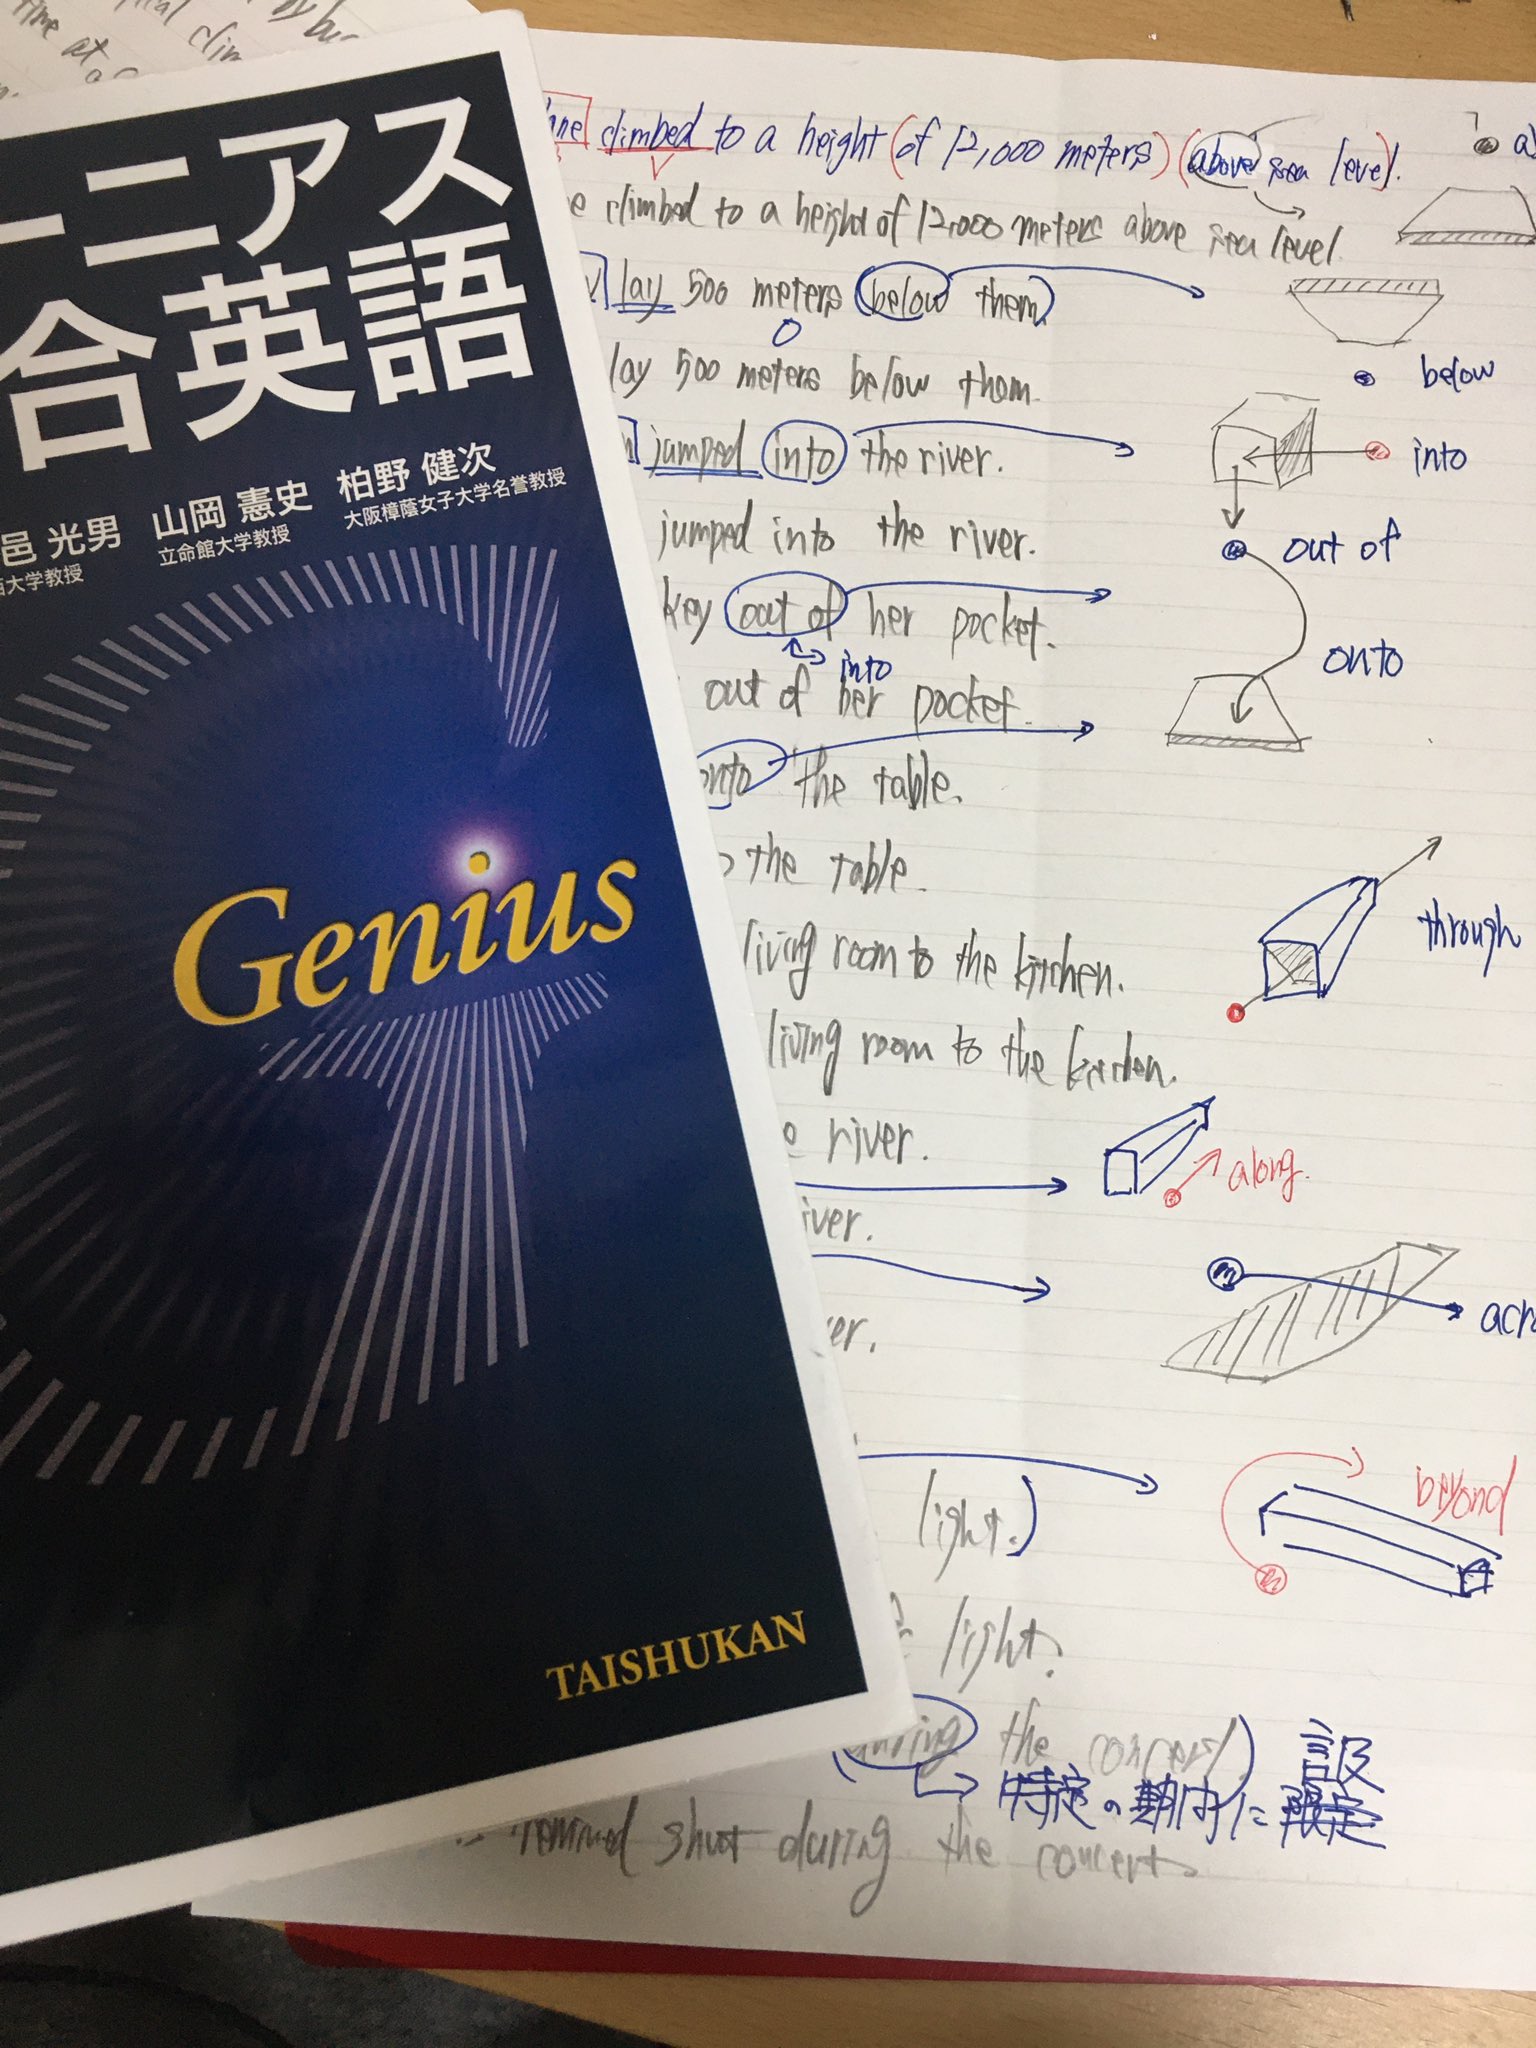 ーニアス
合英語
邑 光男 山岡 憲史 柏野 健次
大学教授 立命館大学教授 大阪樟蔭女子大学名誉教授
Genius
TAISHUKAN
climbed to a height (of 12,000 meters) (above sea level).
climbed to a height of 12,000 meters above sea level.
lay 500 meters (below them)
O
lay 500 meters below them.
below
jumped into the river.
into
jumped into the river.
out of
key out of her pocket.
into
onto
out of her pocket.
onto the table.
the table.
through
living room to the kitchen.
living room to the kitchen.
river.
along.
iver.
er.
light.)
beyond
light.
during the concert)
特定の期間中に
remained shut during the concert.